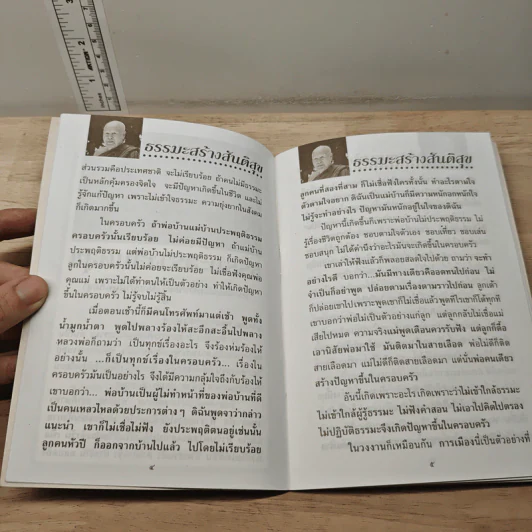 ธรรมะสร้างสันติสุข
ส่วนรวมคือประเทศชาติ จะไม่เรียบร้อย ถ้าคนไม่มีธรรมะ
เป็นหลักคุ้มครองจิตใจ จะมีปัญหาเกิดขึ้นในชีวิต และไม่
รู้จักแก้ปัญหา เพราะไม่เข้าใจธรรมะ ความยุ่งยากในสังคม
ก็เกิดมากขึ้น
ในครอบครัว ถ้าพ่อบ้านแม่บ้านประพฤติธรรม
ครอบครัวนั้นเรียบร้อย ไม่ค่อยมีปัญหา ถ้าแม่บ้าน
ประพฤติธรรม แต่พ่อบ้านไม่ประพฤติธรรม ก็เกิดปัญหา
ลูกในครอบครัวนั้นไม่ค่อยจะเรียบร้อย ไม่เชื่อฟังคุณพ่อ
คุณแม่ เพราะไม่ได้ทำตนให้เป็นตัวอย่าง ทำให้เกิดปัญหา
ขึ้นในครอบครัว ไม่รู้จบไม่รู้สิ้น
เมื่อตอนเช้านี้ก็มีคนโทรศัพท์มาแต่เช้า พูดทั้ง
น้ำมูกน้ำตา พูดไปพลางร้องไห้สะอึกสะอื้นไปพลาง
หลวงพ่อก็ถามว่า เป็นทุกข์เรื่องอะไร จึงร้องห่มร้องไห้
อย่างนั้น ...ก็เป็นทุกข์เรื่องในครอบครัว... เรื่องใน
ครอบครัวมันเป็นอย่างไร จึงได้มีความกลุ้มใจถึงกับร้องไห้
เขาบอกว่า... พ่อบ้านเป็นผู้ไม่ทำหน้าที่ของพ่อบ้านที่ดี
เป็นคนเหลวไหลด้วยประการต่าง ๆ ดิฉันพูดจาว่ากล่าว
แนะนำ เขาก็ไม่เชื่อไม่ฟัง ยังประพฤติตนอยู่เช่นนั้น
ลูกคนหัวปี ก็ออกจากบ้านไปแล้ว ไปโดยไม่เรียบร้อย
๔
ธรรมะสร้างสันติสุข
ลูกคนที่สองที่สาม ก็ไม่เชื่อฟังใครทั้งนั้น ทำอะไรตามใจ
ตัวตามใจอยาก ดิฉันเป็นแม่บ้านก็มีความหนักอกหนักใจ
ไม่รู้จะทำอย่างไร ปัญหามันหนักอยู่ในใจของดิฉัน
ปัญหานี้เกิดขึ้นก็เพราะพ่อบ้านไม่ประพฤติธรรม ไม่
รู้เรื่องชีวิตถูกต้อง ชอบตามใจตัวเอง ชอบเที่ยว ชอบเล่น
ชอบสนุก ไม่ได้คำนึงว่าอะไรมันจะเกิดขึ้นในครอบครัว
เขาเล่าให้ฟังแล้วก็พลอยสลดใจไปด้วย ถามว่า จะทำ
อย่างไรดี บอกว่า...มันมีทางเดียวคืออดทนไปก่อน ไม่
จำเป็นก็อย่าพูด ปล่อยตามเรื่องตามราวไปก่อน ลูกเต้า
ก็ปล่อยเขาไปเพราะพูดเขาก็ไม่เชื่อแล้วพูดทีไรเขาก็โต้ทุกที
เขาบอกว่าพ่อไม่เป็นตัวอย่างแก่ลูก แต่ลูกกลับไม่เชื่อแม่
เสียไปหมด ความจริงแม่พูดเตือนควรรับฟัง แต่ลูกก็ดื้อ
เอานิสัยพ่อมาใช้ มันติดมาในสายเลือด พ่อไม่ดีก็ติด
สายเลือดมา แม่ไม่ดีก็ติดสายเลือดมา แต่นั่นพ่อคนเดียว
สร้างปัญหาขึ้นในครอบครัว
อันนี้เกิดเพราะอะไร เกิดเพราะว่าไม่เข้าใกล้ธรรมะ
ไม่เข้าใกล้ผู้รู้ธรรมะ ไม่ฟังคำสอน ไม่เอาไปคิดไปตรอง
ไม่ปฏิบัติธรรมะจึงเกิดปัญหาขึ้นในครอบครัว
ในวงงานก็เหมือนกัน การเมืองนี้เป็นตัวอย่างที่
๕